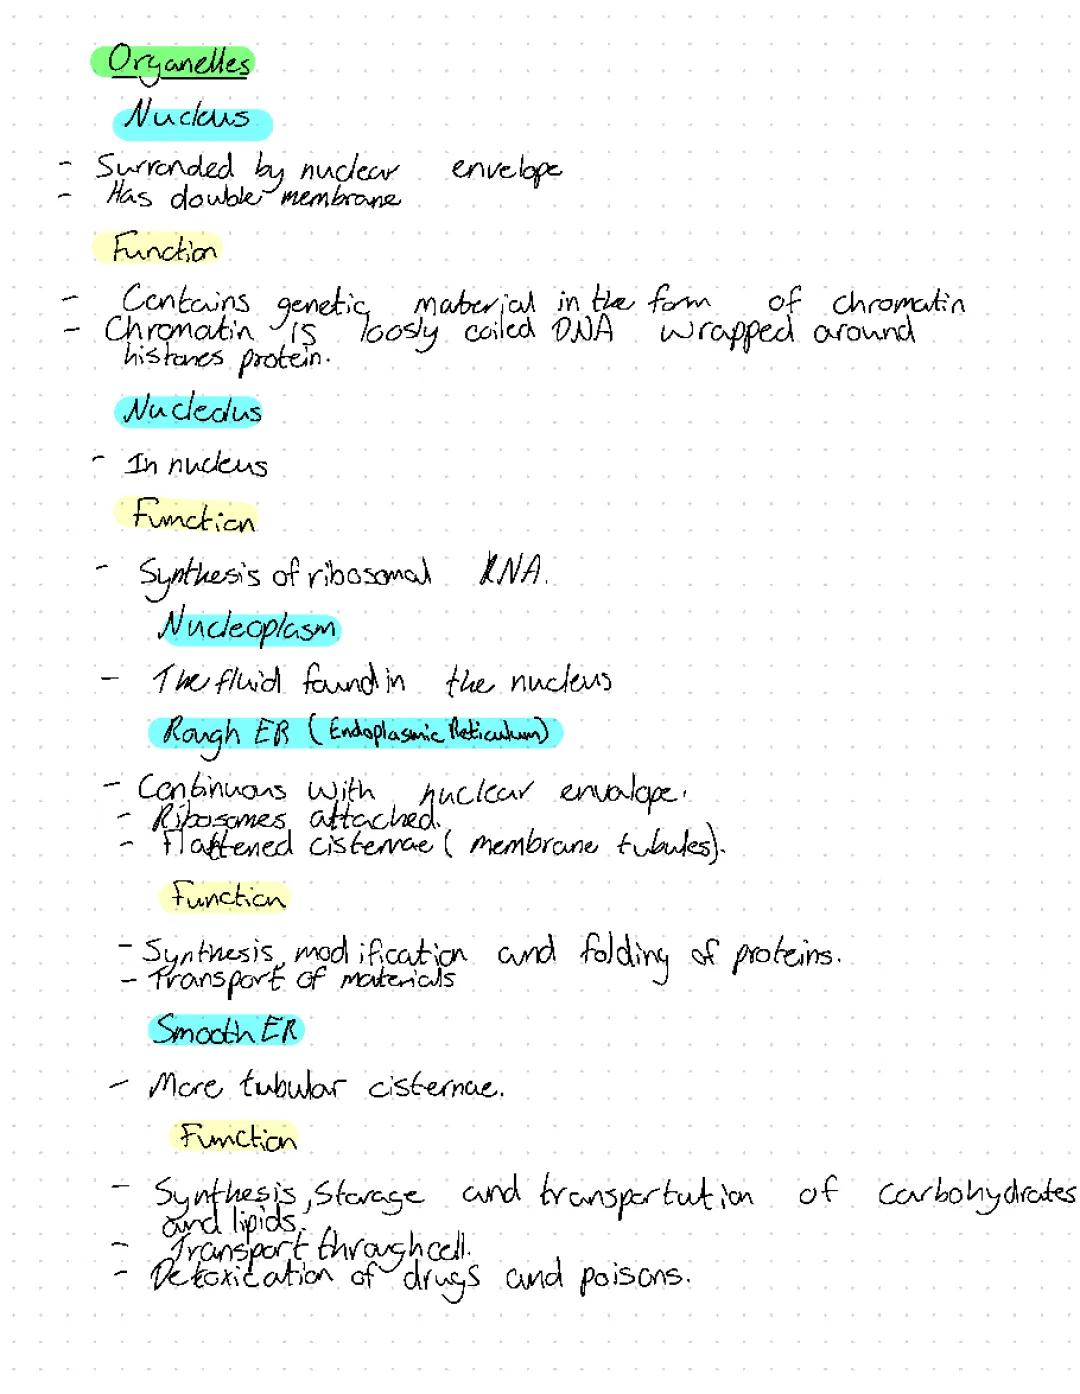 Organelles
Nucleus
- Surronded by nuclear envelope
- Has double membrane
Function
- Contains genetic material in the form of chromatin
- Chromatin is loosly coiled DNA wrapped around
histones protein.
Nucleolus
- In nucleus
Function
- Synthesis of ribosomal RNA.
Nucleoplasm
- The fluid found in the nucleus
Rough ER (Endoplasmic Reticulum)
- Continuous with nuclear envalope.
- Ribosomes attached.
- Flattened cisternae (membrane tubules).
Function
- Synthesis, modification and folding of proteins.
- Transport of materials
Smooth ER
- More tubular cisternae.
Function
- Synthesis, Storage and transportation of carbohydrates
and lipids.
- Transport through cell.
- Detoxication of drugs and poisons.